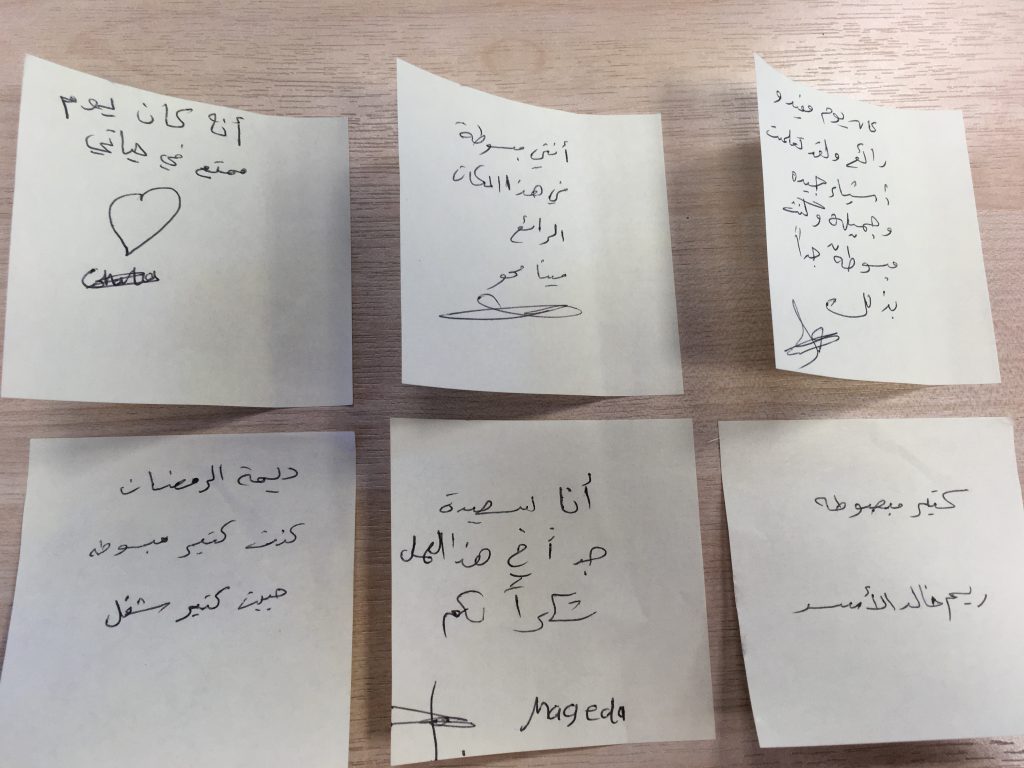 أنه كان يوم
ممتع في حياتي
أنني مبسوطة
في هذا المكان
الرائع
مينا محو
كان يوم مفيد و
رائع ولقد تعلمت
أشياء جيده
وجميلة وكنت
مبسوطة جداً
بذلك
ديمة الرمضان
كنت كتير مبسوطه
حبيت كتير شغل
أنا لسعيدة
جداً في هذا العمل
شكراً لكم
Mageda
كتير مبصوطه
ريم خالد الأسد